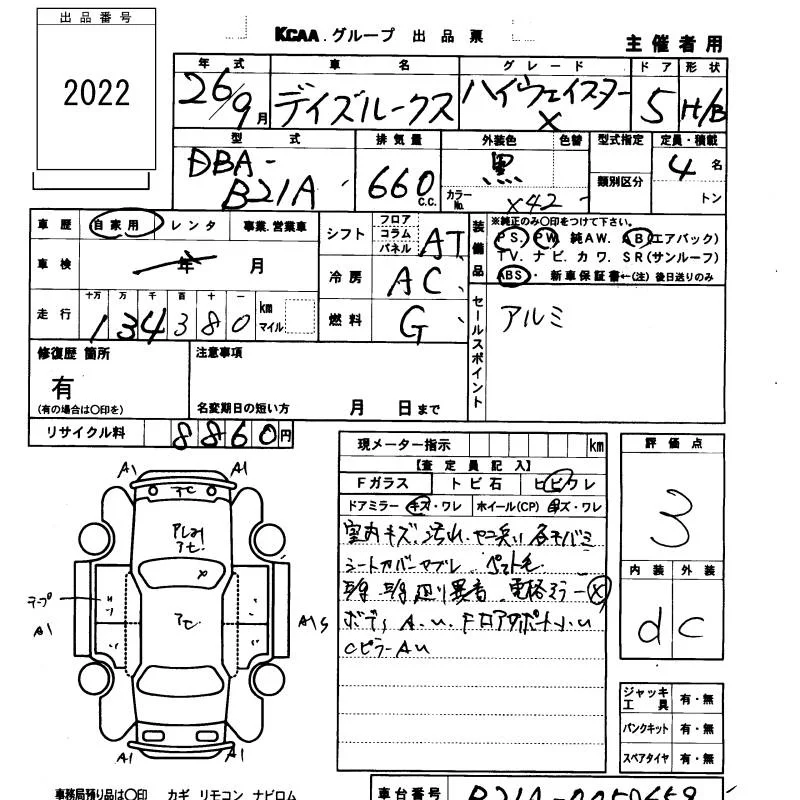 出品番号
2022
KCAA.グループ 出品票
主催者用
年式 車名 グレード ドア 形状
26/9月 デイズルークス ハイウェイスターX 5 H/B
型式 排気量 外装色 色替 型式指定 定員・積載
DBA-B21A 660 C.C. 黒 カラーNo. X42 類別区分 4名
トン
車歴 自家用 レンタ 事業.営業車
車検 年 月
走行 十万 万 千 百 十 一 km マイル
134380
シフト フロア コラム パネル AT
冷房 AC
燃料 G
装備品
※純正のみ○印をつけて下さい。
PS. PW. 純AW. AB(エアバック)
TV. ナビ. カワ. SR(サンルーフ)
ABS・ 新車保証書←(注)後日送りのみ
セールスポイント
アルミ
修復歴 箇所
有
(有の場合は○印を)
注意事項
名変期日の短い方 月 日まで
リサイクル料 8860円
現メーター指示 km
【査定員記入】
Fガラス トビ石 ヒビワレ
ドアミラー キズ・ワレ ホイール(CP) キズ・ワレ
室内キズ.汚れ.ヤニ臭い
シートカバーヤブレ
異音
ボディ A.U.
CピラーAU
評価点
3
内装 外装
d c
ジャッキ工具 有・無
パンクキット 有・無
スペアタイヤ 有・無
A1 A1
テープ
A1
A1S
A1 A1
事務局預り品は○印 カギ リモコン ナビロム
車台番号 B21A-